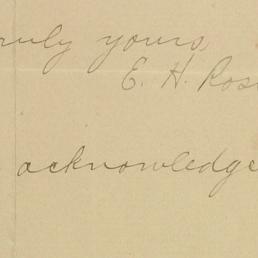 truly yours,
E. H. Ros
acknowledge